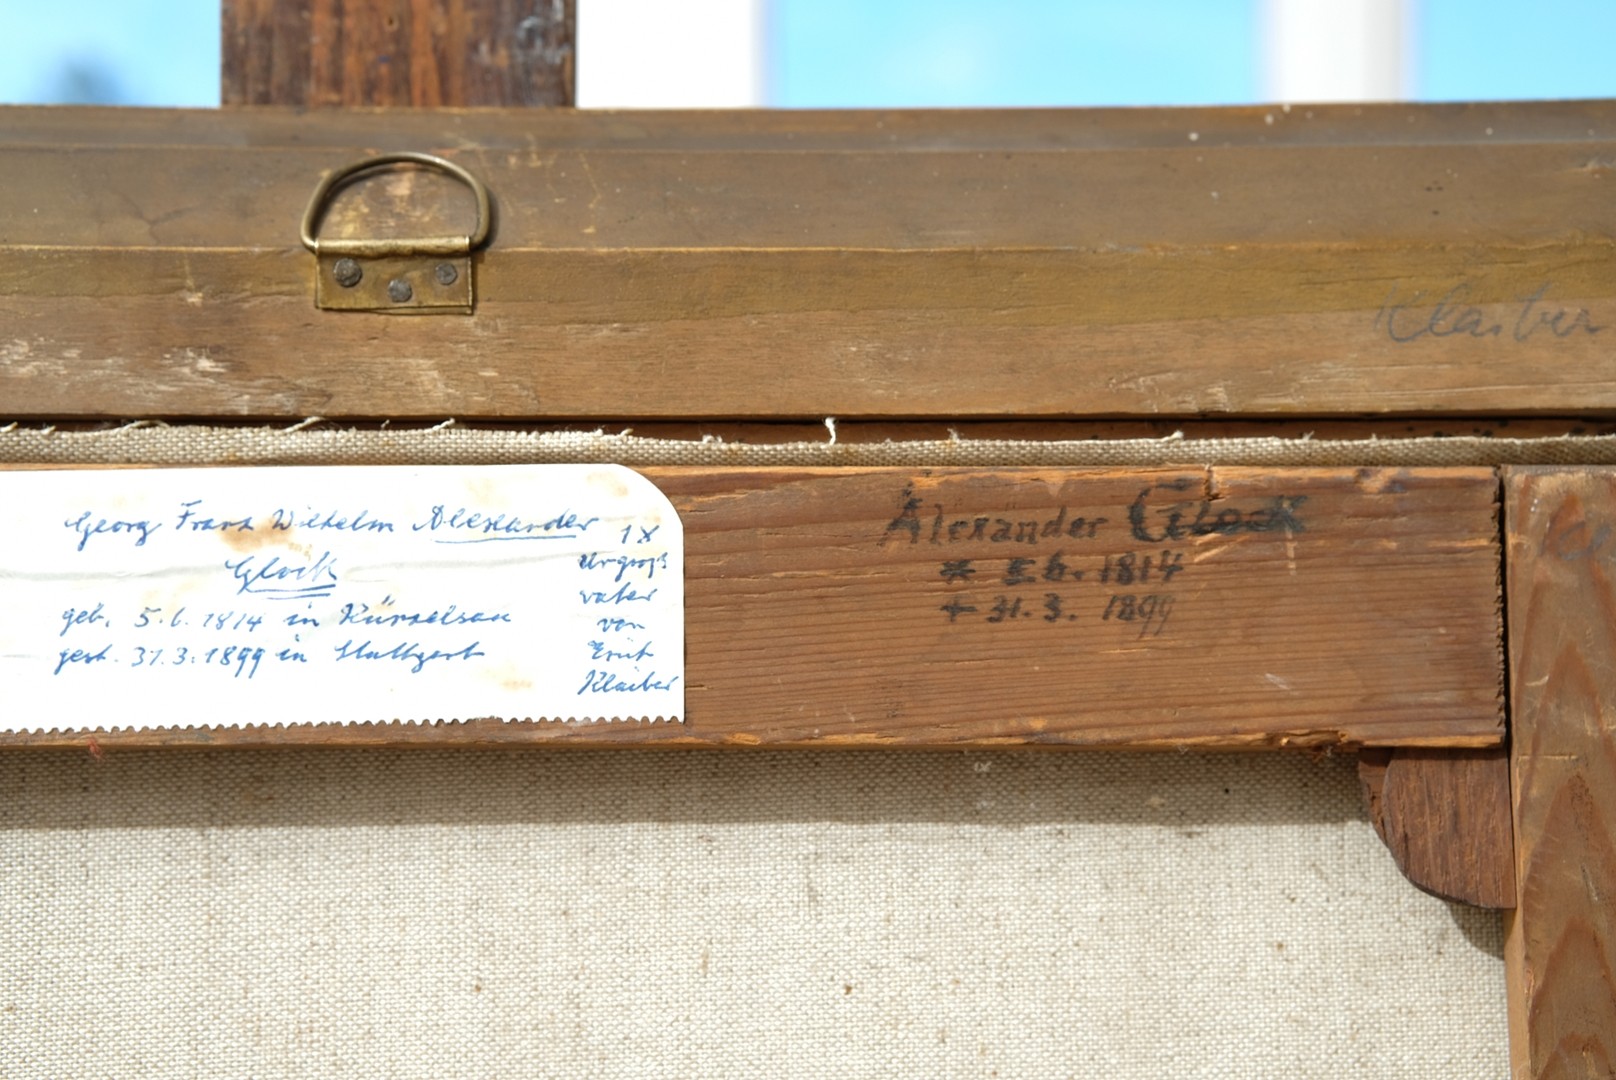 Klaiber
Georg Franz Wilhelm Alexander
Glock
geb. 5.6.1814 in Künzelsau
gest. 31.3.1899 in Stuttgart
1x
Urgroß
vater
von
Erich
Klaiber
Alexander Glock
* 5.6.1814
+ 31.3.1899